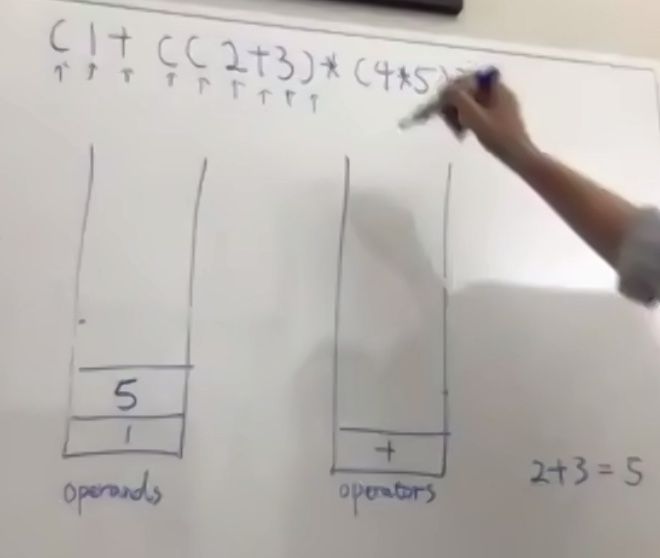 (1+((2+3)*(4*5)
5
1
+
operands
operators
2+3=5